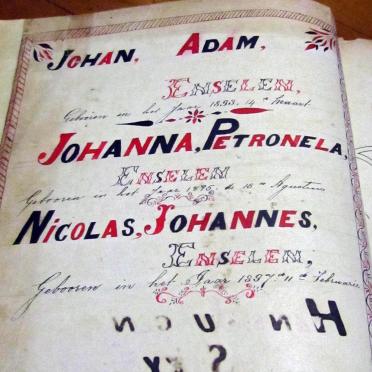 JOHAN, ADAM,
ENSELEN,
Geboren in het Jaar 1893, 14de Maart.
JOHANNA, PETRONELA,
ENSELEN
Gebooren in het Jaar 1895, de 16de Agustus
NICOLAS, JOHANNES,
ENSELEN,
Gebooren in het Jaar 1897, 11de Februarie